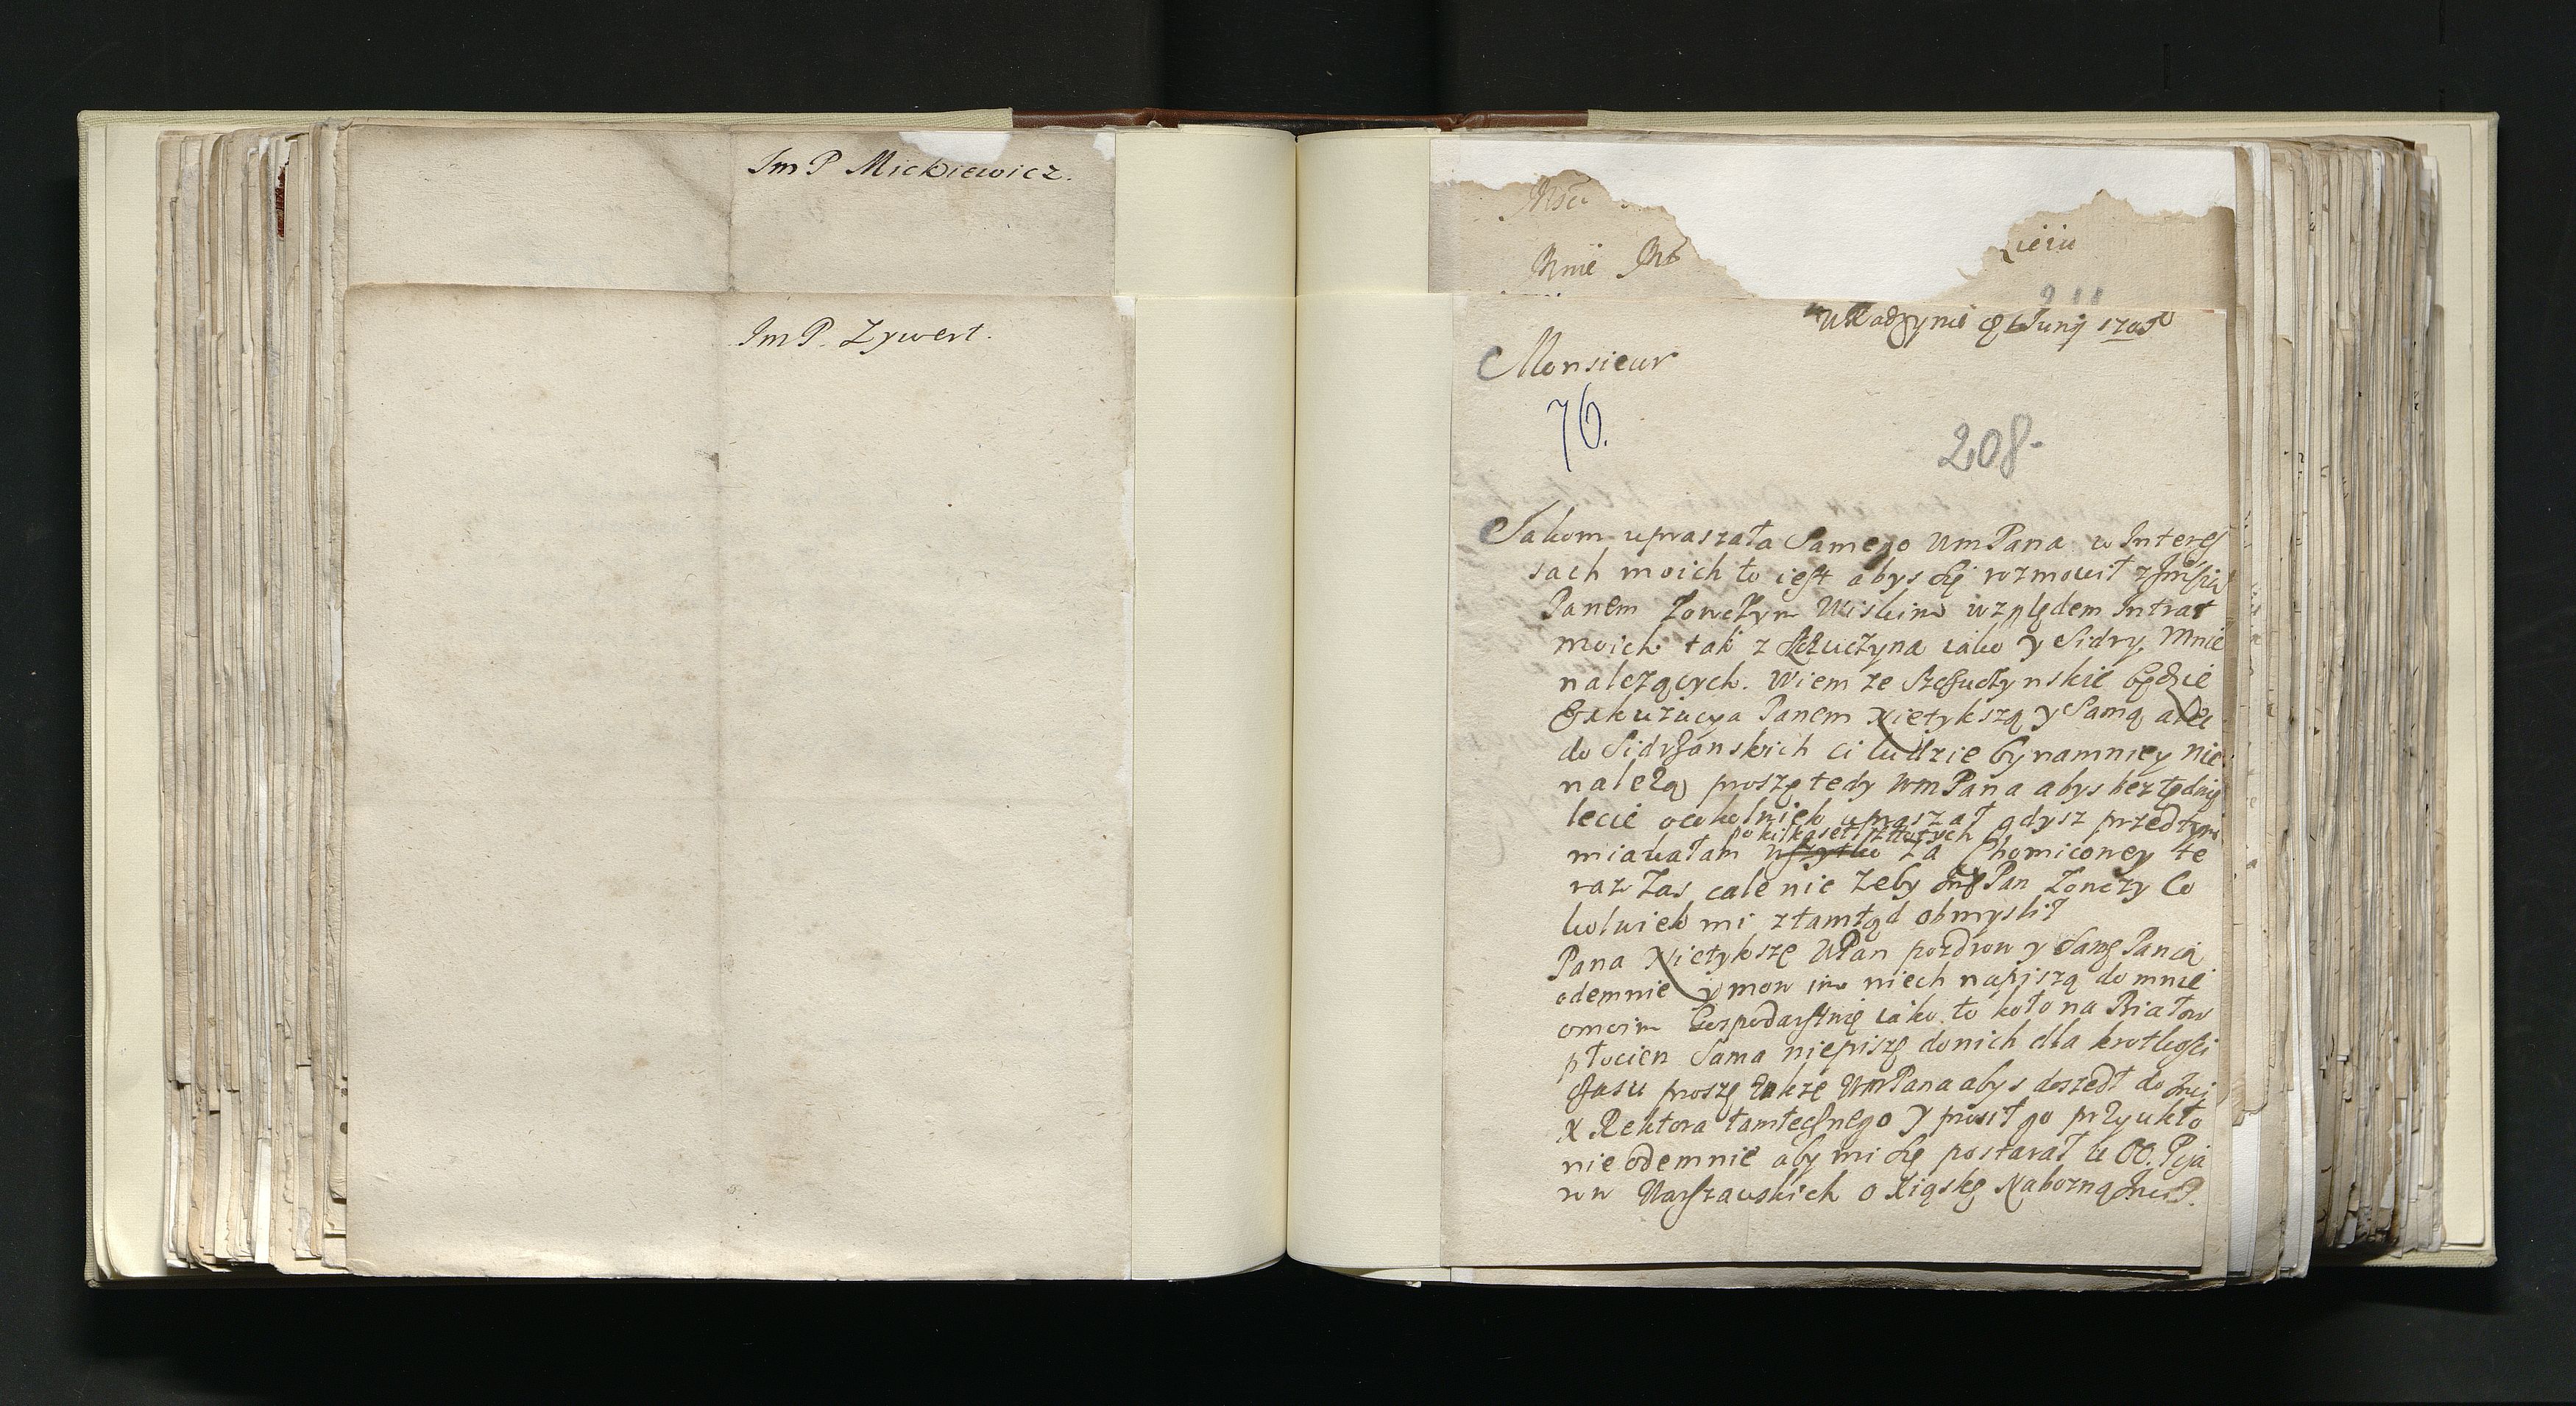 Im P Mickiewicz.
Im P. Zywert.
Mnie
ieiu
211
Junij
Monsieur
76.
208.
Jakom upraszała Samego WmPana w Interes
sach moich to iest abys się rozmowił z
Panem Łowczym Wiskim względem Intrat
moich tak z Szczuczyna iako y Sidry, Mnie
nalezących. Wiem ze Szczuczynskie będzie
Exkuzacya Panem Nietykszą y Samą ale
do Sidrzanskich ci ludzie bynamniey nie
należą proszę tedy WmPana abys bez
lecie ocokolwiek upraszał gdysz przedtym
po kilkaset złłotych
miawałam wszytko za Chomiconey te
raz Zas cale nie zeby Pan Łowczy Co
kolwiek mi ztamtąd obmyslił
Pana Nietykszę WPan pozdrow y Samę Panią
odemnie y mow im niech napiszą do mnie
omoim Gospodarstwie iako to koło na Białow
płocien Sama niepiszę donich dla krotkosci
czasu proszę także WmPana abys doszedł do
X Rektora tamtecznego y prosił go przy ukło
nie odemnie aby mi się postarał u OO. Pija
row Warszawskich o Xiąskę Nabozną